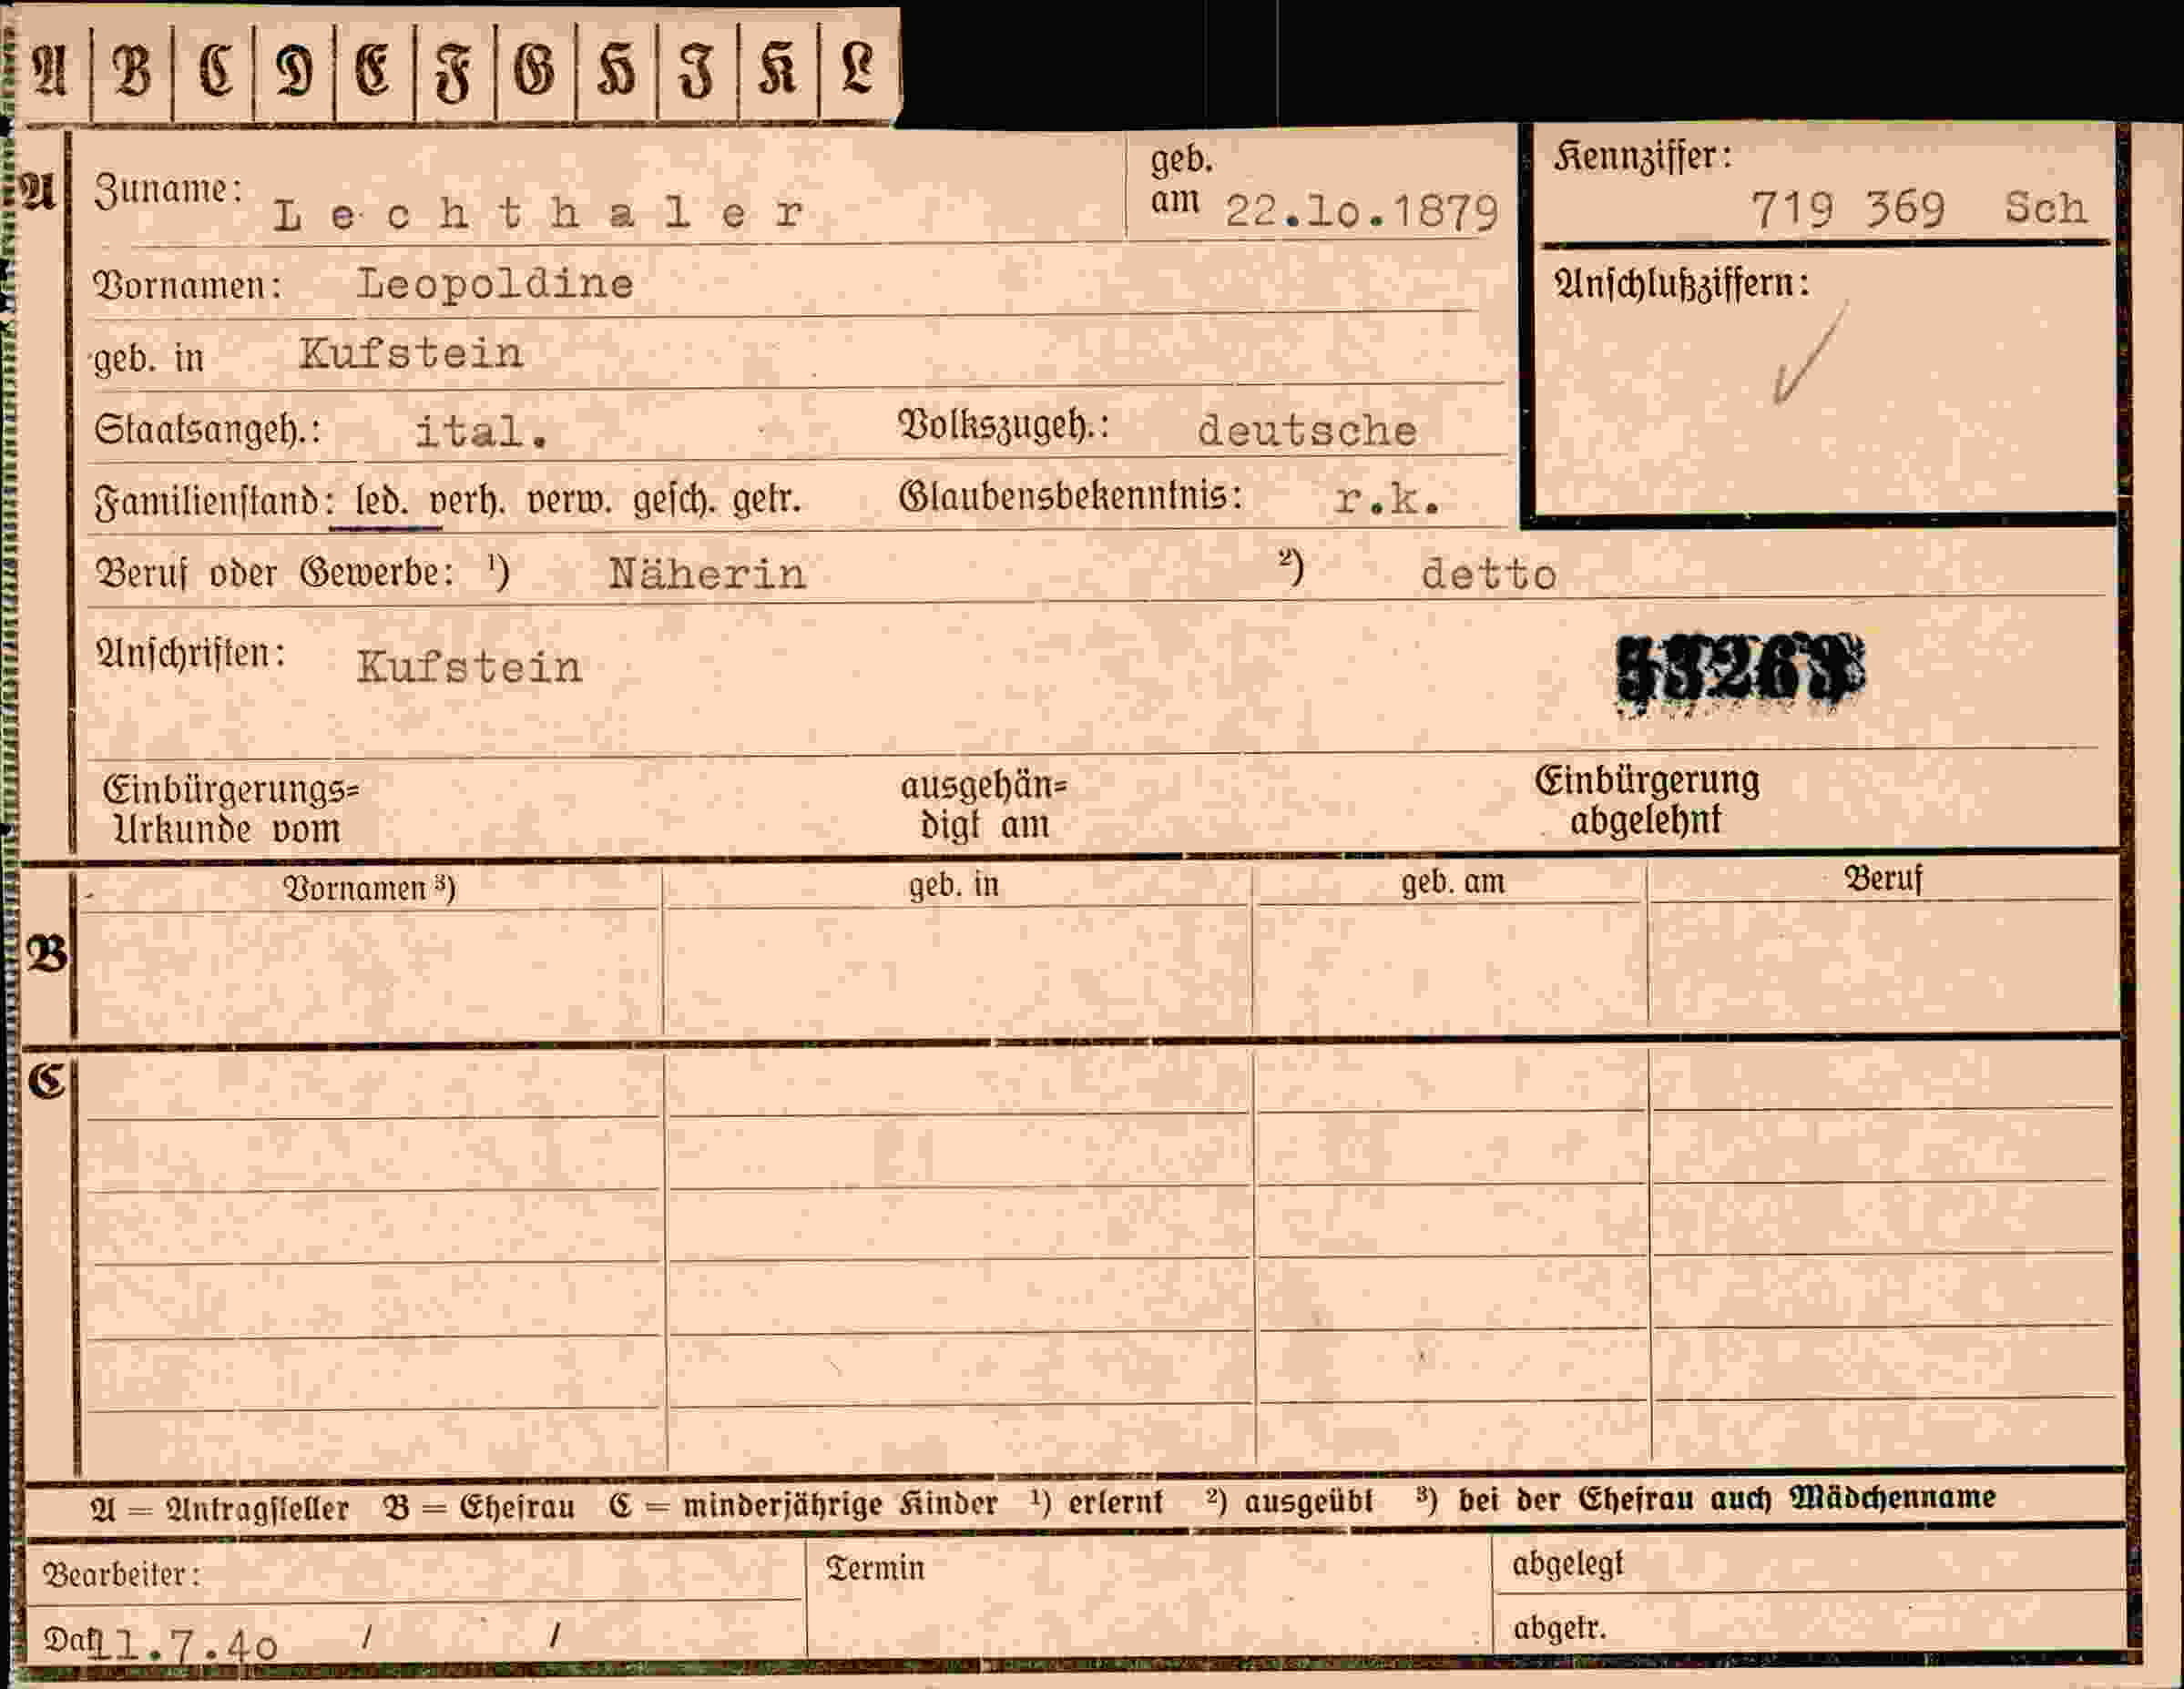 A B C D E F G H I K L
A Zuname: Lechthaler geb. am 22.lo.1879 Kennziffer: 719 369 Sch
Vornamen: Leopoldine Anschlußziffern:
geb. in Kufstein
Staatsangeh.: ital. Volkszugeh.: deutsche
Familienstand: led. verh. verw. gesch. getr. Glaubensbekenntnis: r.k.
Beruf oder Gewerbe: ¹) Näherin ²) detto
Anschriften: Kufstein
Einbürgerungs= ausgehän= Einbürgerung
Urkunde vom digt am abgelehnt
Vornamen ³) geb. in geb. am Beruf
B
C
A = Antragsteller B = Ehefrau C = minderjährige Kinder ¹) erlernt ²) ausgeübt ³) bei der Ehefrau auch Mädchenname
Bearbeiter: Termin abgelegt
Dat. 11.7.4o / / abgetr.